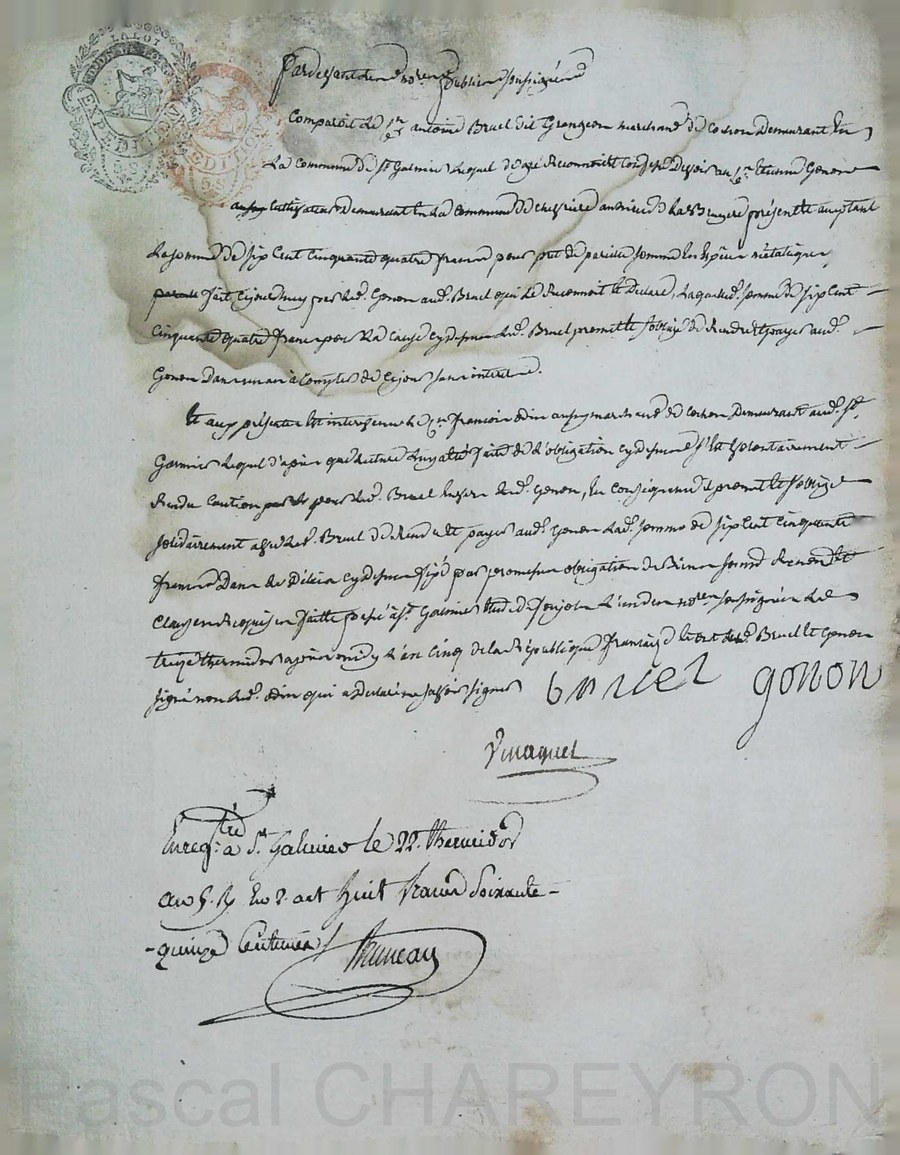 LA LOI
EXPÉDITION
Pardevant le no.re public soussigné
Comparoit le c.en antoine Bruel dit Grangeon marchand de cochon Demeurant En
La commune de st Galmier Lequel de gré Reconnoit Devoir au c.en Etienne Gonon
cultivateur Demeurant En La commune de chevriere au lieu de La présent et acceptant
La somme de six Cent Cinquante quatre francs pour prêt de pareille somme En Espèce métalique
fait Cejourdhuy par led. Gonon aud. Bruel qui Le Reconnoit et Declare, Laquelle somme de six Cent
Cinquante quatre francs pour La Cause cy dessus led. Bruel promet et s'oblige de Rendre et payer aud.
Gonon Dans un an à Compter de Ce jour sans intérêt.
Et aux présentes Est intervenu le c.en françois odin aussy marchand de cochon Demeurant aud. st
Galmier Lequel d'après que lecture Luy a été faite de L'obligation cy dessus s'est volontairement
Rendu Caution pour led. Bruel Envers led. Gonon, En Conséquence il promet et s'oblige
solidairement avec led. Bruel de Rendre et payer aud. Gonon Lad. somme de six Cent Cinquante
francs Dans le Délai cy dessus fixé par promesse obligation de Biens
Clauses Requises fait et passé à st. Galmier Etude de no.re soussigné le
treize thermidor après midy L'an Cinq de la République française Et ont led. Bruel et Gonon
signé non led. odin qui a Déclaré ne savoir signer
bruel gonon
Vmaquet
Enreg.tré à St Galmier le 22. thermidor
an 5. R. huit francs Soixante-
-quinze Centimes
Pascal CHAREYRON